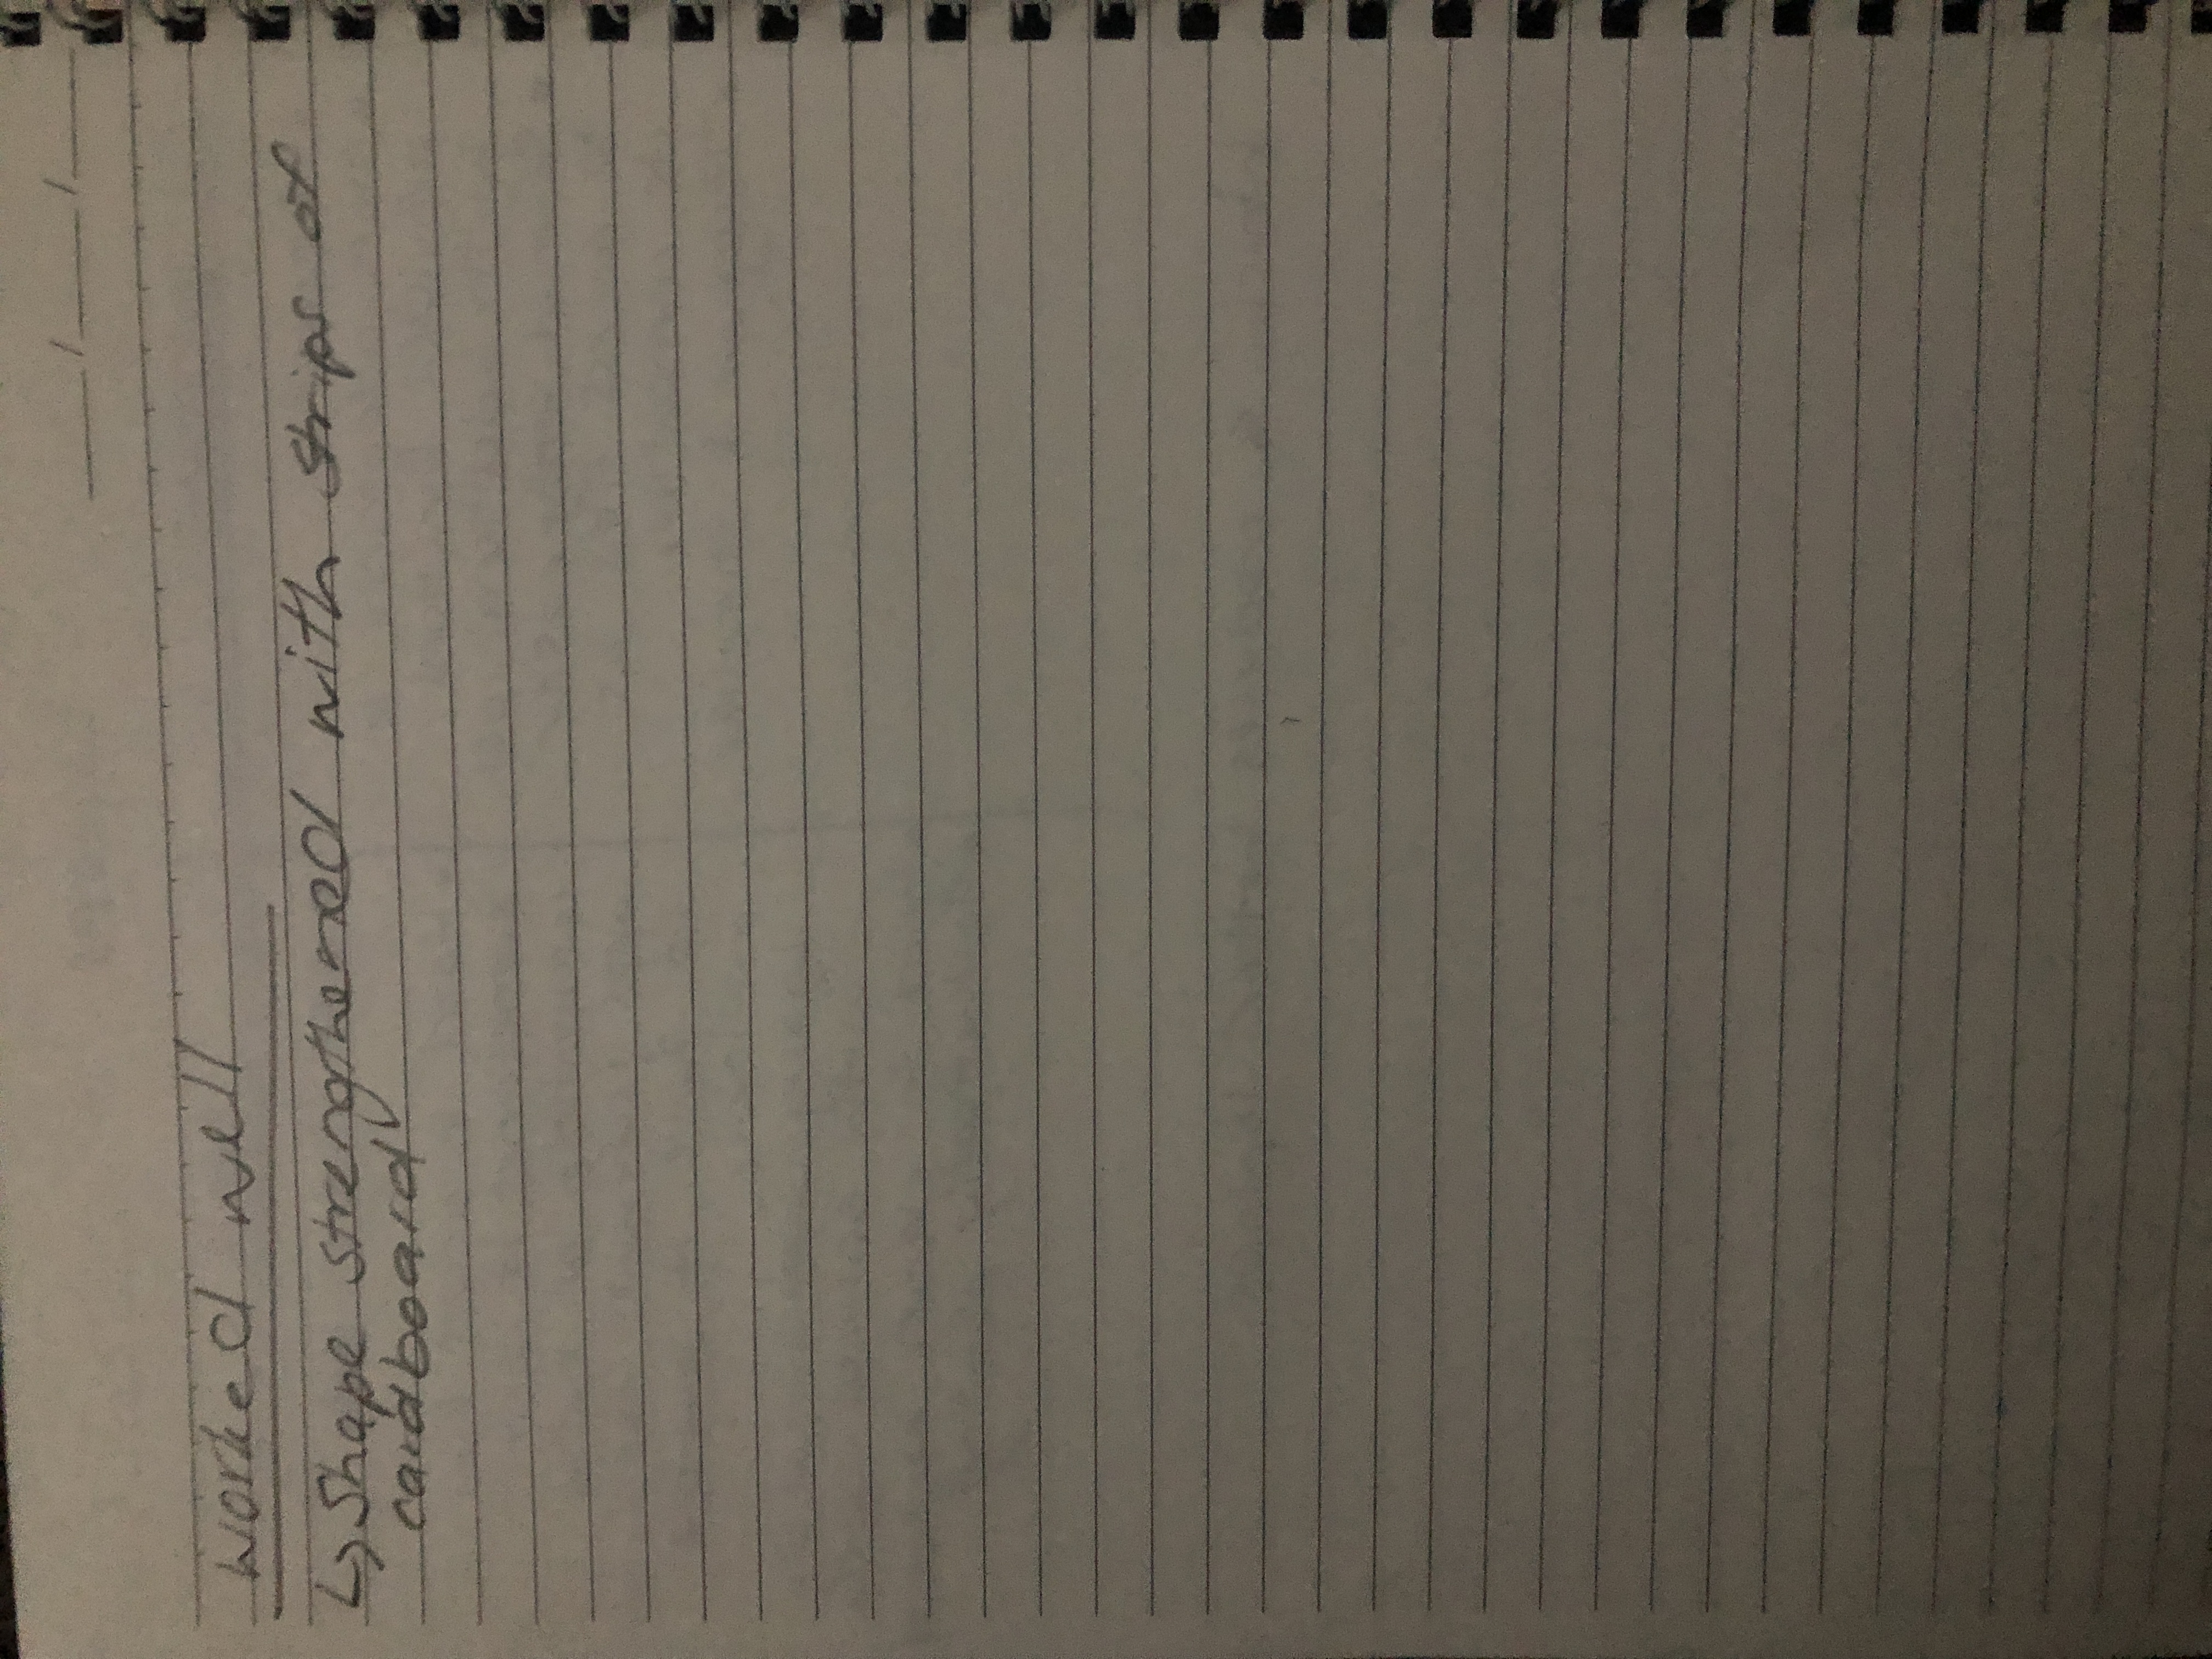 Worked well
↳ Shape strengthened with strips of
cardboard